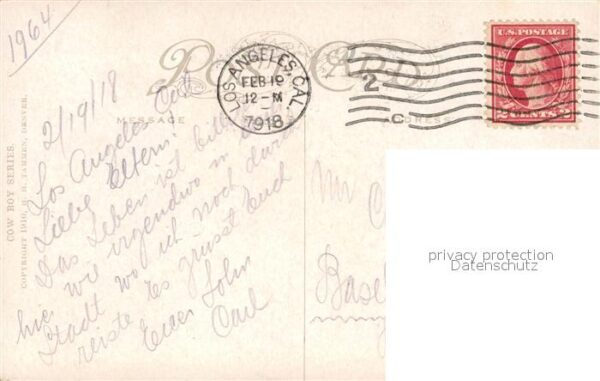 1964
POST CARD
LOS ANGELES, CAL.
FEB 19
12-M
1918
2
C
U.S. POSTAGE
2 CENTS 2
MESSAGE
ADDRESS
COW BOY SERIES.
COPYRIGHT 1910, H. H. TAMMEN, DENVER.
2/19/18
Los Angeles Cal
Liebe Eltern!
Das Leben ist
hier wie irgendwo in der
Stadt wo ich noch durch
reiste Es grüsst Euch
Euer Sohn
Carl
Mr C
Basel
privacy protection
Datenschutz